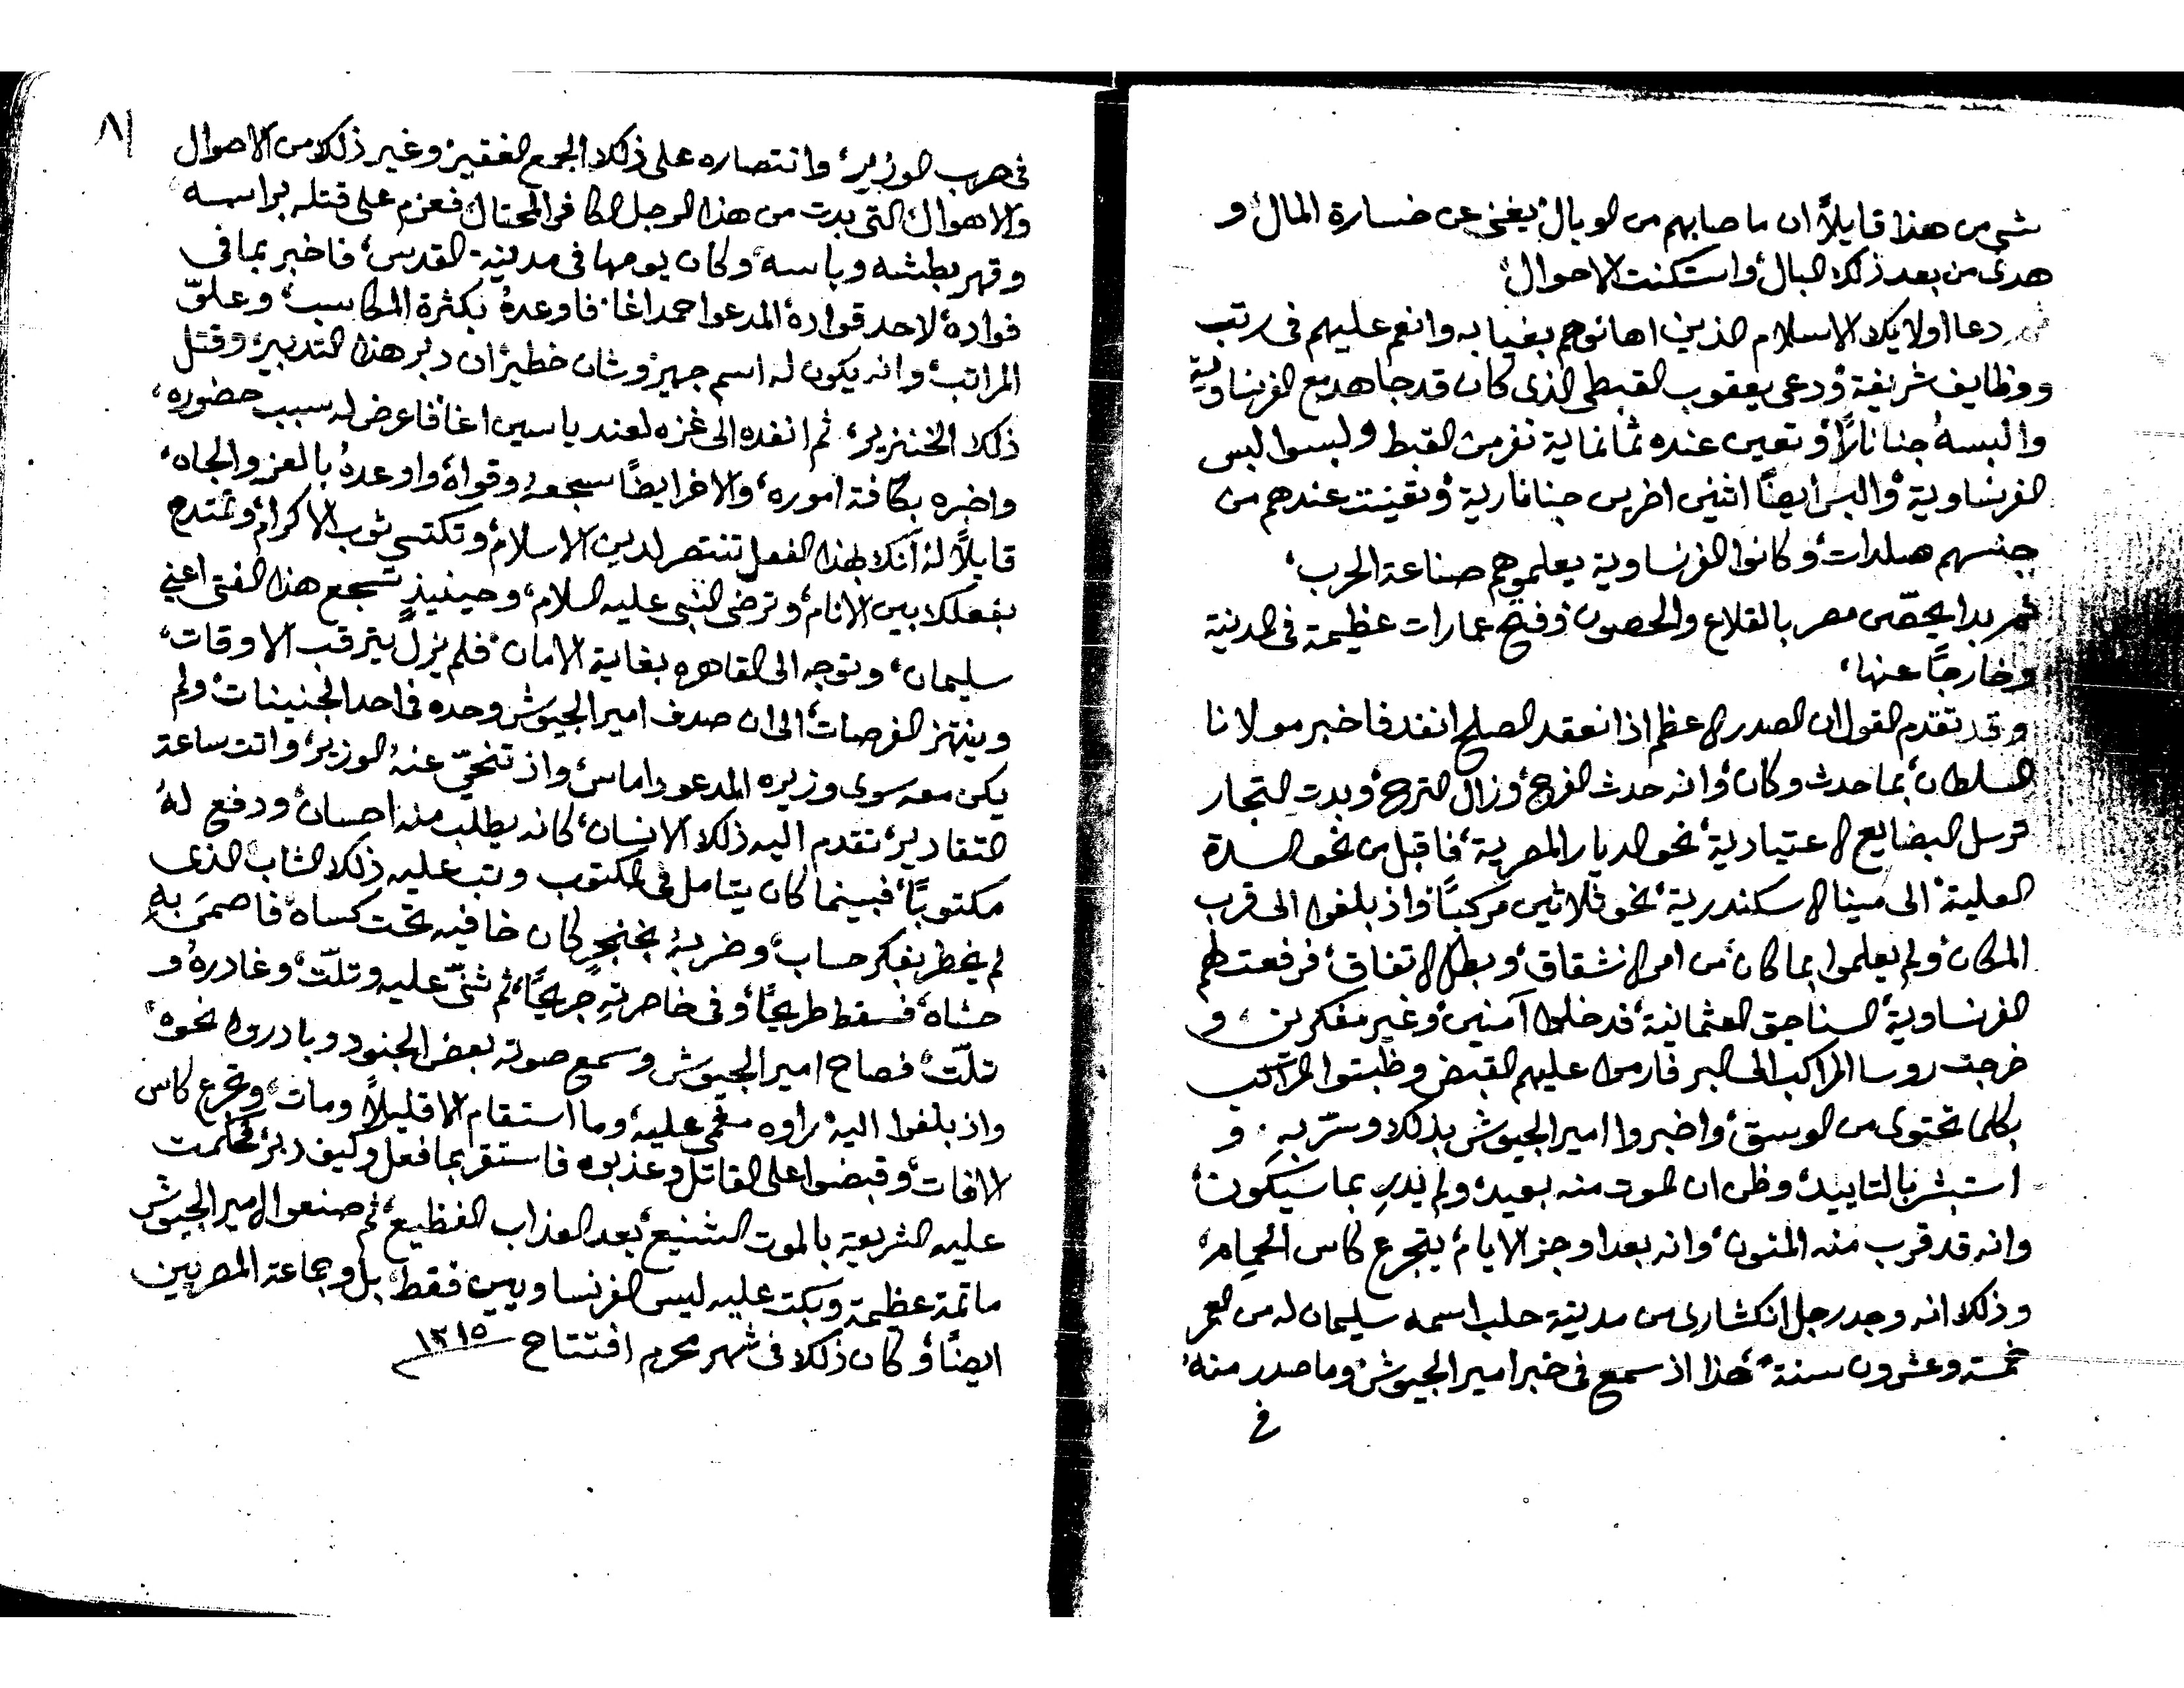 شي من هذا قايلاً ان ما صابهم من الوبال، يغني عن خسارة المال، و
هدى من بعد ذلك البال، واستكنت الاحوال،
ثم دعا اولايك الاسلام الذين اهانوهم بغيابه وانعم عليهم في رتب
ووظايف شريفة، ودعى يعقوب القبطي الذي كان قد جاهد مع الفرنساوية
والبسهُ جنانارًا، وتعين عنده ثمانماية نفر من القبط ولبسوا لبس
الفرنساوية، والبس ايضًا اثنين اخرين جنانارية، وتقينت عندهم من
جنسهم صلدات، وكانوا الفرنساوية يعلموهم صناعة الحرب،
ثم بدا يحصّن مصر بالقلاع والحصون، وفتح عمارات عظيمة في المدينة
وخارجًا عنها،
وقد تقدم القول ان الصدر الاعظم اذ انعقد الصلح انفد فاخبر مولانا
السلطان، بما حدث وكان، وانه حدث الفرج، وزال الترح، وبدت التجار
ترسل البضايع الاعتيادية، نحو الديار المصرية، فاقبل من نحو السدة
العلية، الى مينا الاسكندرية، نحو ثلاثين مركبًا، واذ بلغوا الى قرب
المكان، ولم يعلموا بما كان، من امر الانشقاق، وبطل الاتفاق، فرفعت لهم
الفرنساوية السناجق العثمانية، فدخلوا آمنين، وغير مفكرين، و
خرجت روسا المراكب الى البر فارموا عليهم القبض وظبتوا المراكب
بكلما تحتوى من الوسق، واخبروا امير الجيوش بذلك وسرّ بهِ، و
استبشر بالتاييد، وظن ان الموت منه بعيد، ولم يدرِ بما سيكون،
وانه قد قرب منه المنون، وانه بعد اوجز الايام، يتجرع كاس الحِمام،
وذلك انه وجد رجل انكشاري من مدينة حلب اسمه سليمان له من العمر
خمسة وعشرون سنة، فهذا اذ سمع في خبر امير الجيوش، وما صدر منهُ
في
٨١
في حرب الوزير، وانتصاره على ذلك الجمع الغفير، وغير ذلك من الاحوال
والاهوال التي بدت من هذا الرجل الكافر المحتال، فعزم على قتله براسه
وقهر بطشه وباسه، وكان يومها في مدينة القدس، فاخبر بما في
فوادهُ لاحد قوادهُ المدعوا احمد اغا. فاوعدهُ بكثرة المكاسب، وعلوّ
المراتب، وانه يكون له اسم جهير، وشان خطير، ان دبر هذا التدبير، وقتل
ذلك الخنزير، ثم انفده الى غزه لعند ياسين اغا، فاعرض له سبب حضوره،
واخبره بكافة اموره، والاخر ايضًا سجعهُ وقواهُ واوعدهُ بالعز والجاه،
قايلاً لهُ انك بهذا الفعل تنتصر لدين الاسلام، وتكتسي ثوب الاكرام، وتمتدح
بفعلك بين الانام، وترضي النبي عليه السلام، وحينيذٍ تسجع هذا الفتى اعني
سليمان، وتوجه الى القاهره بغاية الامان، فلم يزل يترقب الاوقات،
وينتهز الفرصات، الى ان صدف امير الجيوش وحده في احد الجنينات، ولم
يكن معه سوى وزيره المدعو داماس، واذ تنحّي عنهُ الوزير، واتت ساعة
التقادير، تقدم اليه ذلك الانسان، كانه يطلب منه احسان، ودفع لهُ
مكتوبًا، فبينما كان يتامل في المكتوب وتب عليه ذلك الشاب الذي
لم يخطر بفكر حساب، وضربهُ بخنجرٍ كان خافيه تحت كساه، فاصمَى بهِ
حشاه، فسقط طريحًا، وفي خاصرتهِ جريحًا، ثم ثنّى عليه وتلّت، وغادرهُ و
تلّت، فصاح امير الجيوش وسمع صوته بعض الجنود وبادروا نحوه،
واذ بلغوا اليهِ راوه مغمي عليه، وما استقام الا قليلاً ومات، وتجرع كاس
الافات، وقبضوا على القاتل وعذبوه فاستقر بما فعل وكيف دبر، فحكمت
عليه الشريعة بالموت الشنيع، بعد العذاب الفظيع، ثم صنعوا لامير الجيوش
ماتمة عظيمة وبكت عليه ليس الفرنساويين فقط، بل وجماعة المصريين
ايضًا، وكان ذلك في شهر محرم افتتاح ١٢١٥